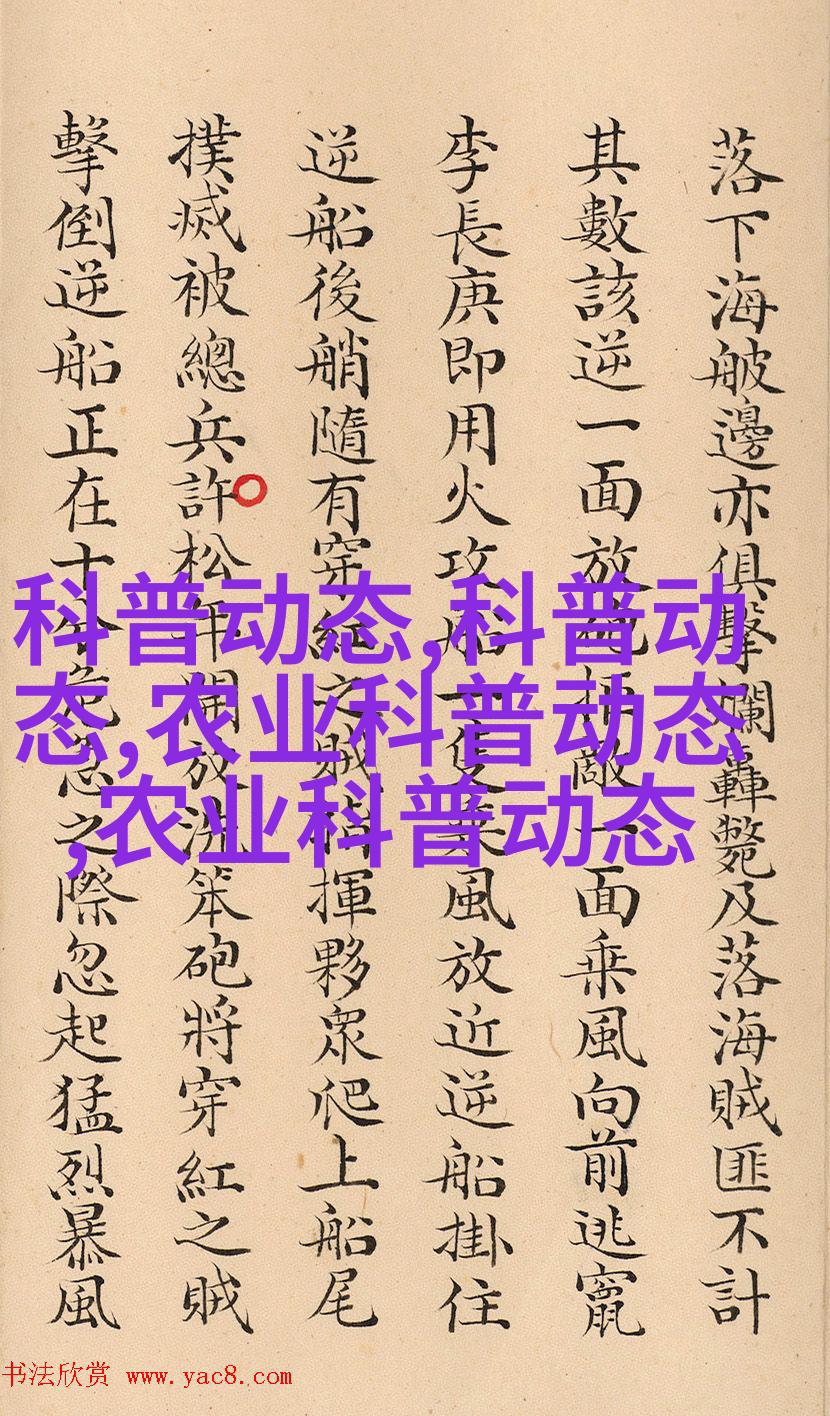 落下海舨邊亦俱擊爛轟斃及落海賊匪不計
其數該逆一面放砲拒敵一面乗風向前逃竄
李長庚即用火攻船一隻乗風放近逆船掛住
逆船後艄隨有穿紅之賊指揮夥眾爬上船尾
撲滅被總兵許松年開放洗笨砲將穿紅之賊
擊倒逆船正在十分危急之際忽起猛烈暴風
科普动态,科普动
态,农业科普动态
,农业科普动态
书法欣赏 www.yac8.com